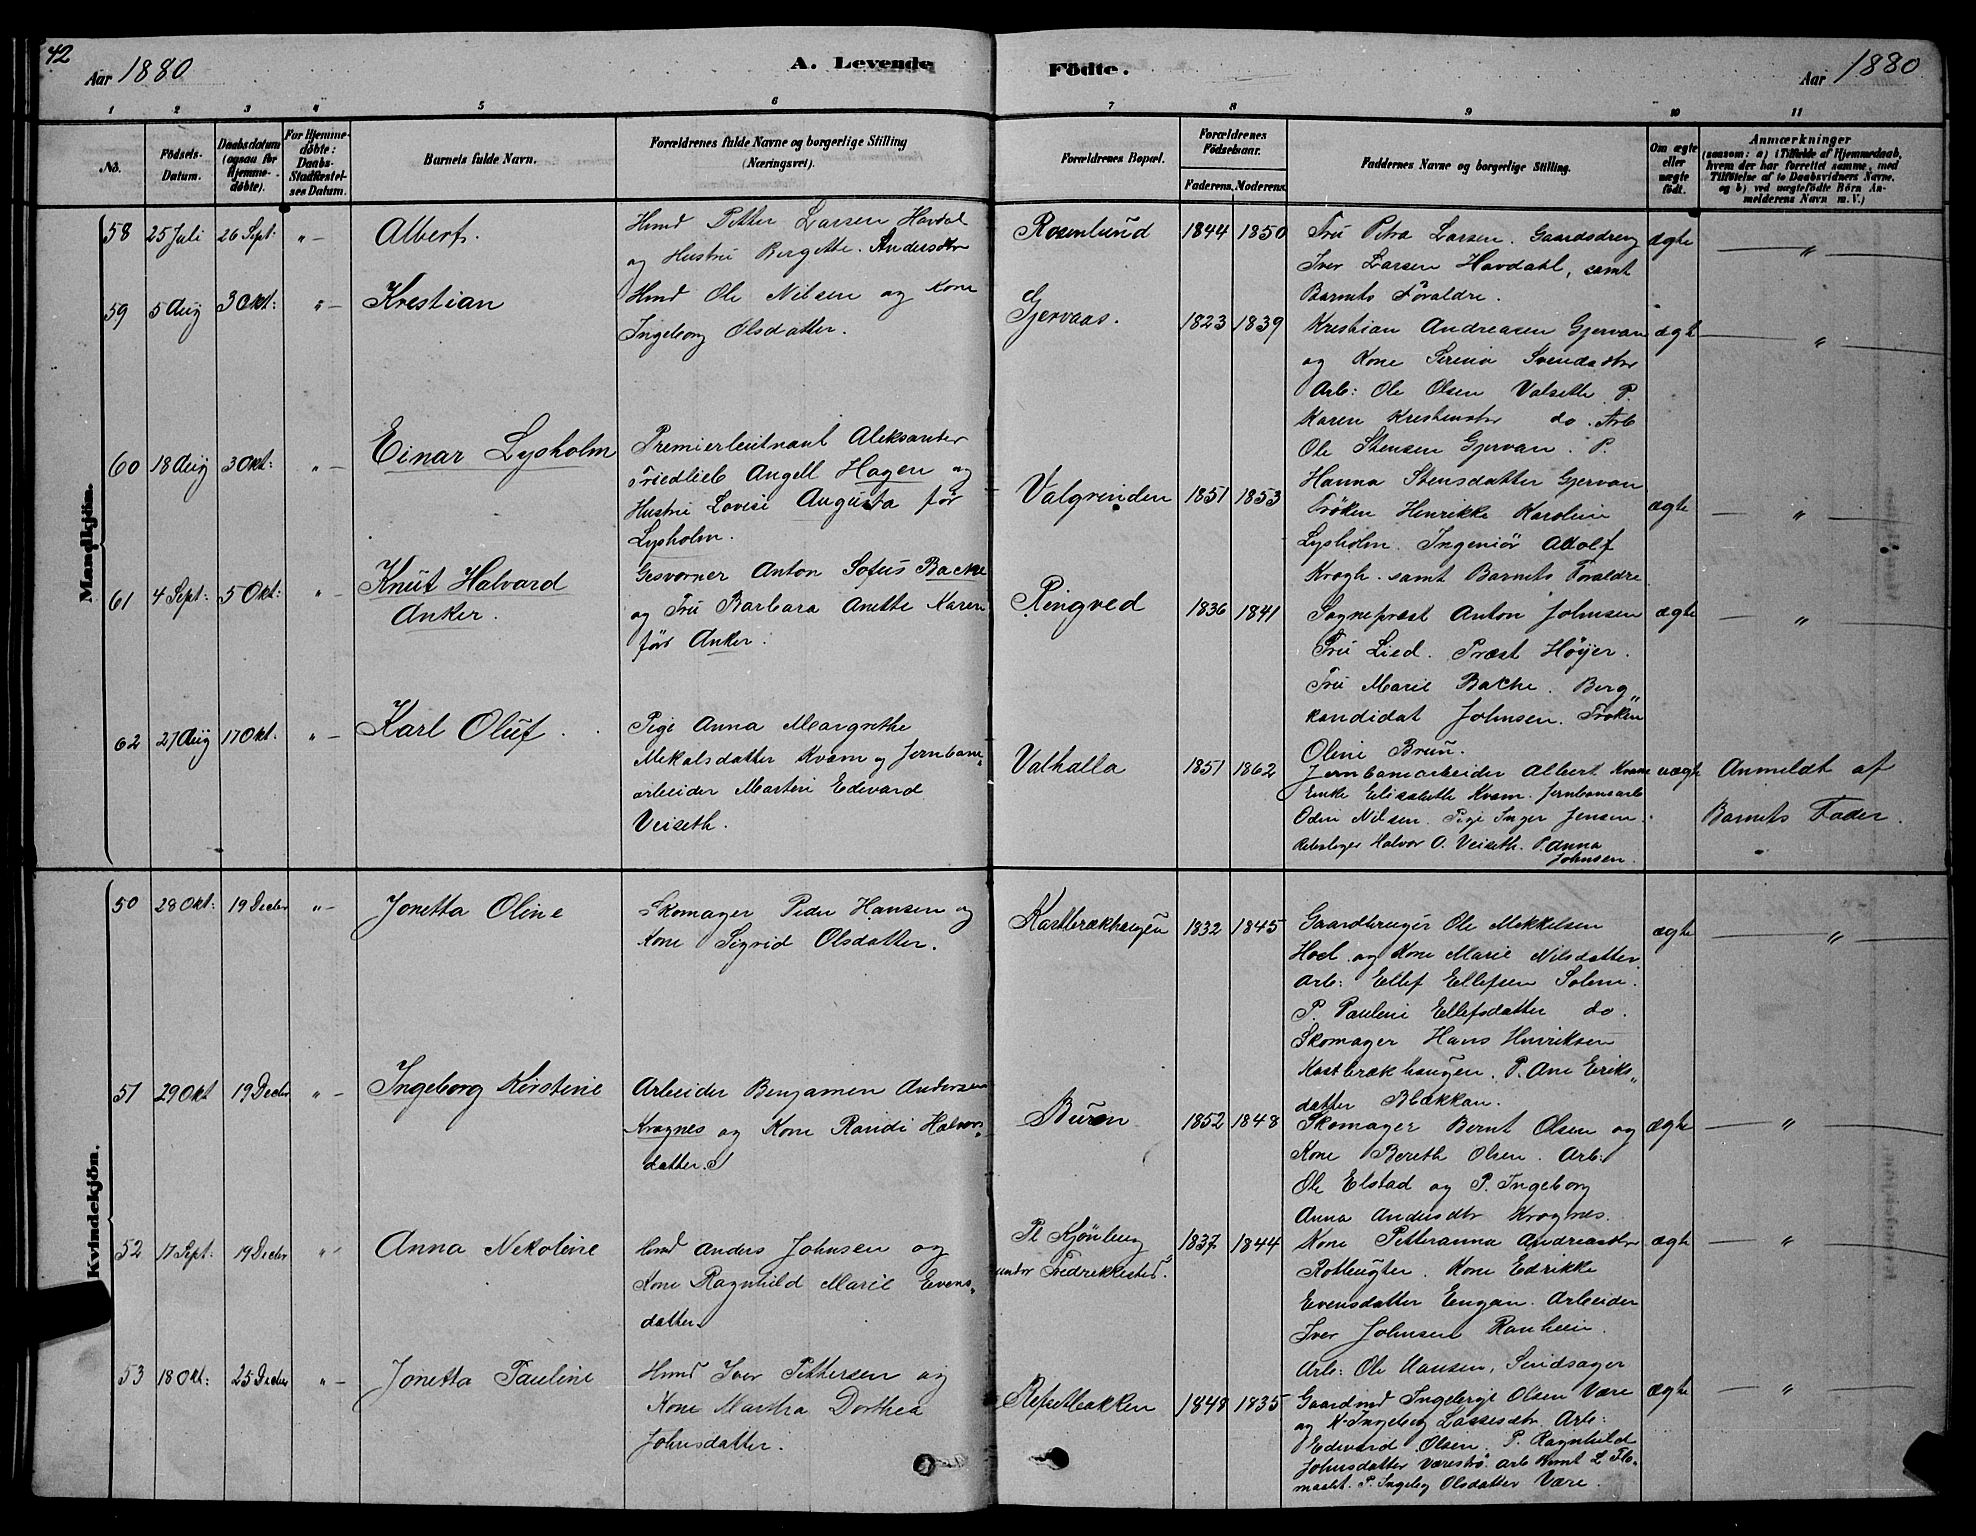 42
Aar 1880
A. Levende Födte.
Aar 1880
1 2 3 4 5 6 7 8 9 10 11
No.
Födsels-
Datum.
Daabsdatum
(ogsaa for
Hjemme-
döbte).
For Hjemme-
döbte:
Daabs-
Stadfæstel-
ses Datum.
Barnets fulde Navn.
Forældrenes fulde Navne og borgerlige Stilling
(Næringsvei).
Forældrenes Bopæl.
Forældrenes
Födselsaar.
Faderens. Moderens.
Faddernes Navne og borgerlige Stilling.
Om ægte
eller
uægte
födt.
Anmærkninger
(saasom: a) i Tilfælde af Hjemmedaab,
hvem der har forrettet samme, med
Tilföielse af to Daabsvidners Navne,
og b) ved uægtefödte Börn An-
melderens Navn m. V.)
Mandkjön.
58 25 Juli 26 Sept: " — Albert.
Hmd Petter Larsen Havdal
og Hustru Bergitte Andersdtr
Rosenlund 1844 1850
Fru Petra Larsen. Gaardsdreng
Iver Larsen Havdahl, samt
Barnets Foraldre.
ægte — " —
59 5 Aug 3 Okt: " — Krestian
Hmd Ole Nilsen og Kone
Ingeborg Olsdatter.
Gjervaas. 1823 1839
Krestian Andreasen Gjervan
og Kone Serina Svendsdtr
Arb: Ole Olsen Valsette P.
Karen Krestensdtr do. Arb
Ole Stensen Gjervan. P.
Hanna Stensdatter Gjervan
ægte — " —
60 18 Aug 3 Okt: " — Einar Lysholm
Premierleutnant Aleksander
Friedlieb Angell Hagen og
Hustru Lovise Augusta før
Lysholm.
Valgrinden 1851 1853
Frøken Henrikke Karoline
Lysholm. Ingeniør Adolf
Krogh. samt Barnets Foraldre
ægte — " —
61 4 Sept: 5 Okt: " — Knut Halvard
Anker.
Gesvorner Anton Sofus Bache
og Fru Barbara Anette Karen
før Anker.
Ringved 1836 1841
Sognepræst Anton Johnsen
Fru Lied. Præst Høyer.
Fru Marie Bache. Berg„
kandidat Johnsen. Frøken
Oline Brun.
ægte — " —
62 27 Aug 17 Okt. " — Karl Oluf.
Pige Anna Margrethe
Mekalsdatter Kvam og Jernbane„
arbeider Martin Edevard
Veiseth.
Valhalla 1851 1862
Jernbanearbeider Albert Kvam
Enke Elisabeth Kvam. Jernbanearb
Oden Nilsen. Pige Inger Jensen.
Halvor O. Veiseth. P. Anna
Johnsen.
uægte
Anmeldt af
Barnets Fader.
Kvindekjön.
50 28 Okt: 19 Decbr " — Jonetta Oline
Skomager Peder Hansen og
Kone Sigrid Olsdatter.
Kastbrækhaugen 1832 1845
Gaardbruger Ole Mekkelsen
Hoel og Kone Marie Nilsdatter.
Arb: Ellef Ellefsen Solem.
P. Pauline Ellefsdatter do.
Skomager Hans Hinriksen
Kastbrækhaugen. P. Ane Eriks„
datter Blækkan.
ægte — " —
51 29 Okt 19 Decbr " — Ingeborg Kirstine
Arbeider Benjamen Andersen
Kragnes og Kone Randi Halvors„
datter.
Buran 1852 1848
Skomager Bernt Olsen og
Kone Bereth Olsen. Arb:
Ole Elstad og P. Ingeborg
Anna Andersdtr Kragnes.
ægte — " —
52 17 Sept. 19 Decbr " — Anna Nekoline
Hmd Anders Johnsen og
Kone Ragnhild Marie Evens„
datter.
Pl Kjønberg
under Fredrikkested. 1837 1844
Kone Petteranna Andreasdtr
Rotlugter. Kone Edrikke
Evensdatter Engan. Arbeider
Iver Johnsen Ranheim.
Arb: Ole Hansen, Sindsager
ægte — " —
53 18 Okt: 25 Decbr " — Jonetta Pauline
Hmd Iver Pettersen og
Kone Martha Dorthea
Johnsdatter.
Refsetbakken 1848 1835
Gaardmd Ingebregt Olsen Være
og K. Ingebog Lassesdtr. Arb:
Edevard Olsen. P. Ragnhild
Johnsdatter Værestrø. Arb Bernt L Flo„
maalet. P. Ingebg Olsdatter Være.
ægte — " —